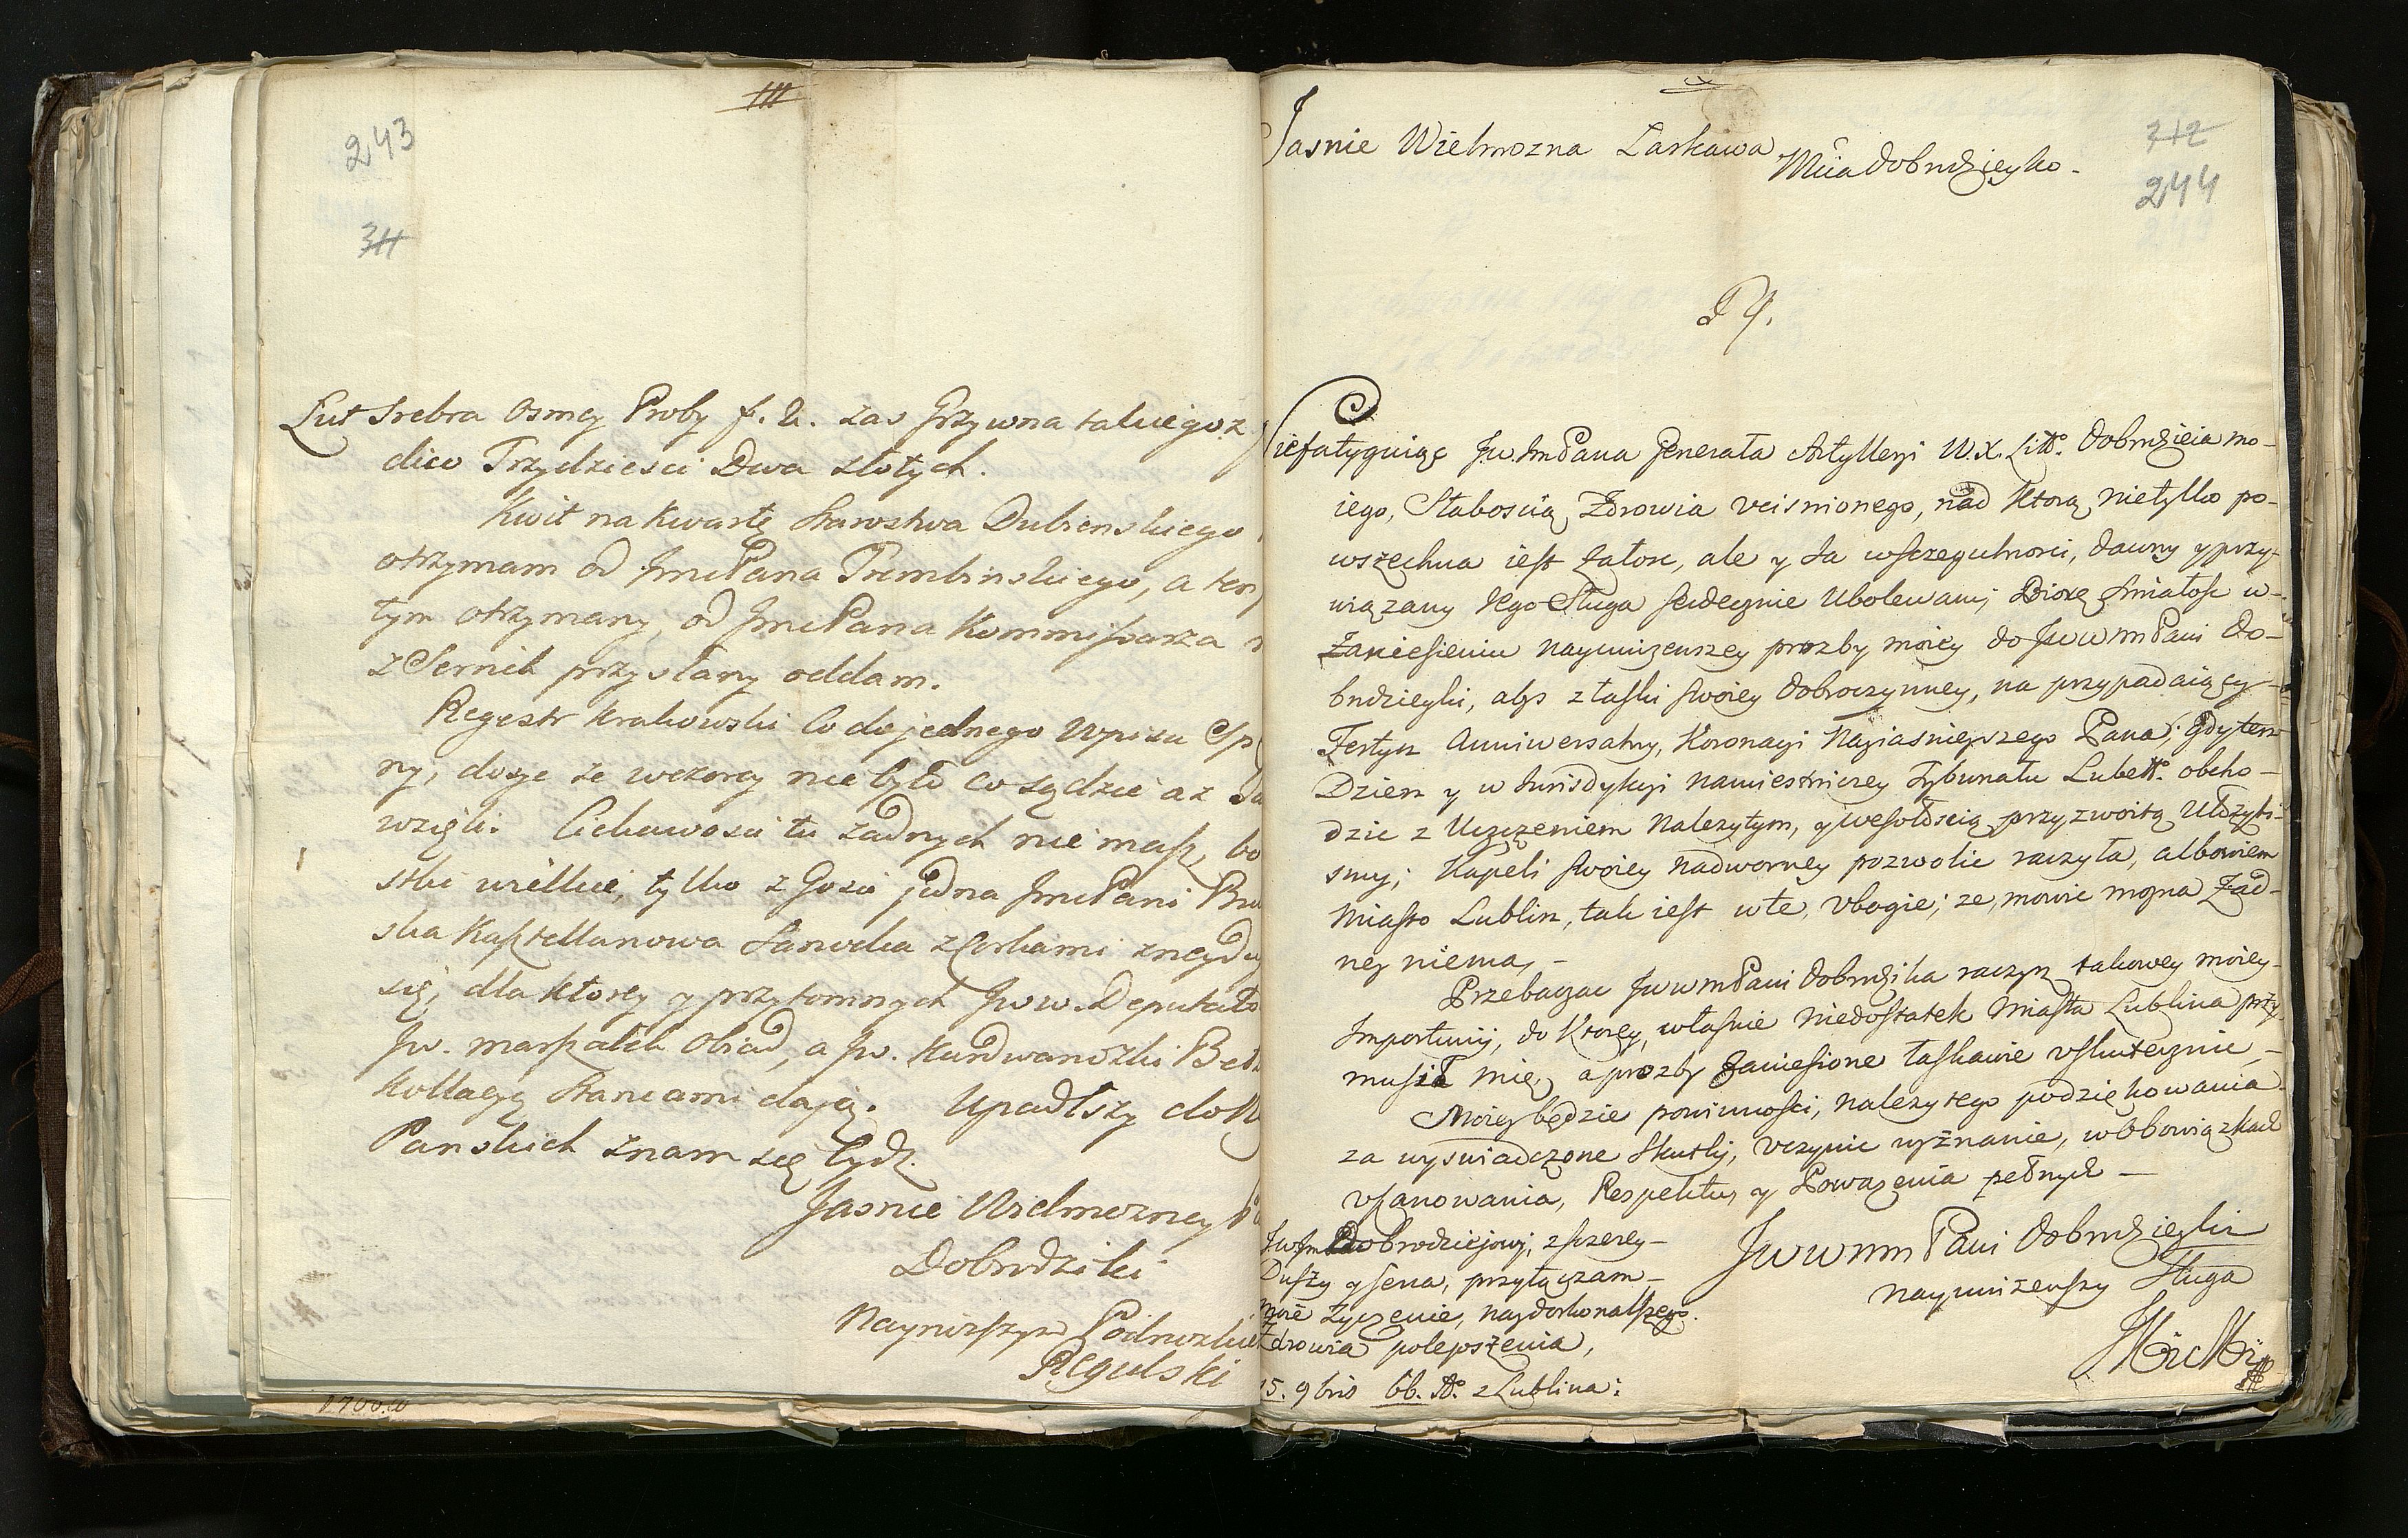 111
243
311
Lut Srebra Osmey Proby f. 2. zas Grzywna takiego z
dico Trzydziesci Dwa złotych.
Kwit na Kwartę Starostwa Dubienskiego
otrzymam od JmcPana Trembinskiego, a ten
tym otrzymany, od JmcPana Kommissarza
z Sernik przysłany oddam.
Regestr Krakowski Co do jednego Wpisu
ny, dosyc ze wczorey nie było co sądzic az
wzięli. Ciekawosci tu zadnych nie masz, bo
stki wielkie, tylko z Gosci jedna JmcPani
ska Kasztellanowa Sanocka z Corkami znayduy
się, dla ktorey y przytomnych Jww. Deputato
Jw. Marszałek Obiad, a Jw. Kurdwanowski
Kollacyą tancami dają. Upadłszy do
Panskich znam się bydz.
Jasnie Wielmozney
Dobrodziki
Nayniższym Podnozkiem
Regulski
1766.
Jasnie Wielmozna Laskawa
Mcia Dobrodzieyko.
312
244
Niefatyguiąc Jw. JmPana Jenerała Artylleryi W. X. Litt. Dobrodzieia mo-
iego, Słaboscią Zdrowia vcisnionego, nad ktorą nietylko po-
wszechna iest Załosc, ale y Ja wszczegulnosci, dawny y przy-
wiązany Jego Sługa serdecznie Ubolewam; Biorę smiałosc w-
Zaniesieniu nayunizenszey prozby moiey do JwwmPani Do-
brodzieyki, abys z łaski swoiey dobroczynney, na przypadaiący
Festyn Anniwersalny, Koronacyi Nayiasnieyszego Pana; gdy ten
Dzien y w Jurisdykcyi namiestniczey Trybunału Lubel. obcho-
dzic z Uczczeniem Nalezytym, y wesołoscią przyzwoitą
smy; Kapeli swoiey nadworney pozwolic raczyła, albowiem
Miasto Lublin, tak iest w te, vbogie; ze, mowic mozna Zad-
ney niema, -
Przebaczac JwwmPani Dobrodzika raczysz takowey moiey
Importunij, do ktorey, własnie niedostatek Miasta Lublina przy
musił mię, a prozby Zaniesione łaskawie vskutecznic -
Moiey będzie powinnosci, nalezytego podziękowania
za wyswiadczone Skutki, vczynic wyznanie, w obowiązkach
vszanowania, Respektu, y Powazenia pełnych -
JwJmP Dobrodziejowi, z szczerey -
Duszy y serca, przyłączam -
moie Zyczenie, naydoskonalszego
Zdrowia polepszenia,
JwwmmPani Dobrodzieyki
nayunizenszy Sługa
15. 9bris 66. Ao. z Lublina: